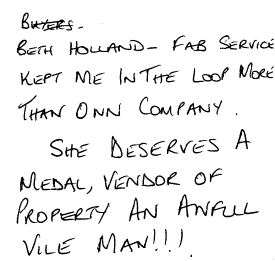 BUYERS-
BETH HOLLAND- FAB SERVICE
KEPT ME IN THE LOOP MORE
THAN ONN COMPANY.
SHE DESERVES A
MEDAL, VENDOR OF
PROPERTY AN AWFULL
VILE MAN!!!